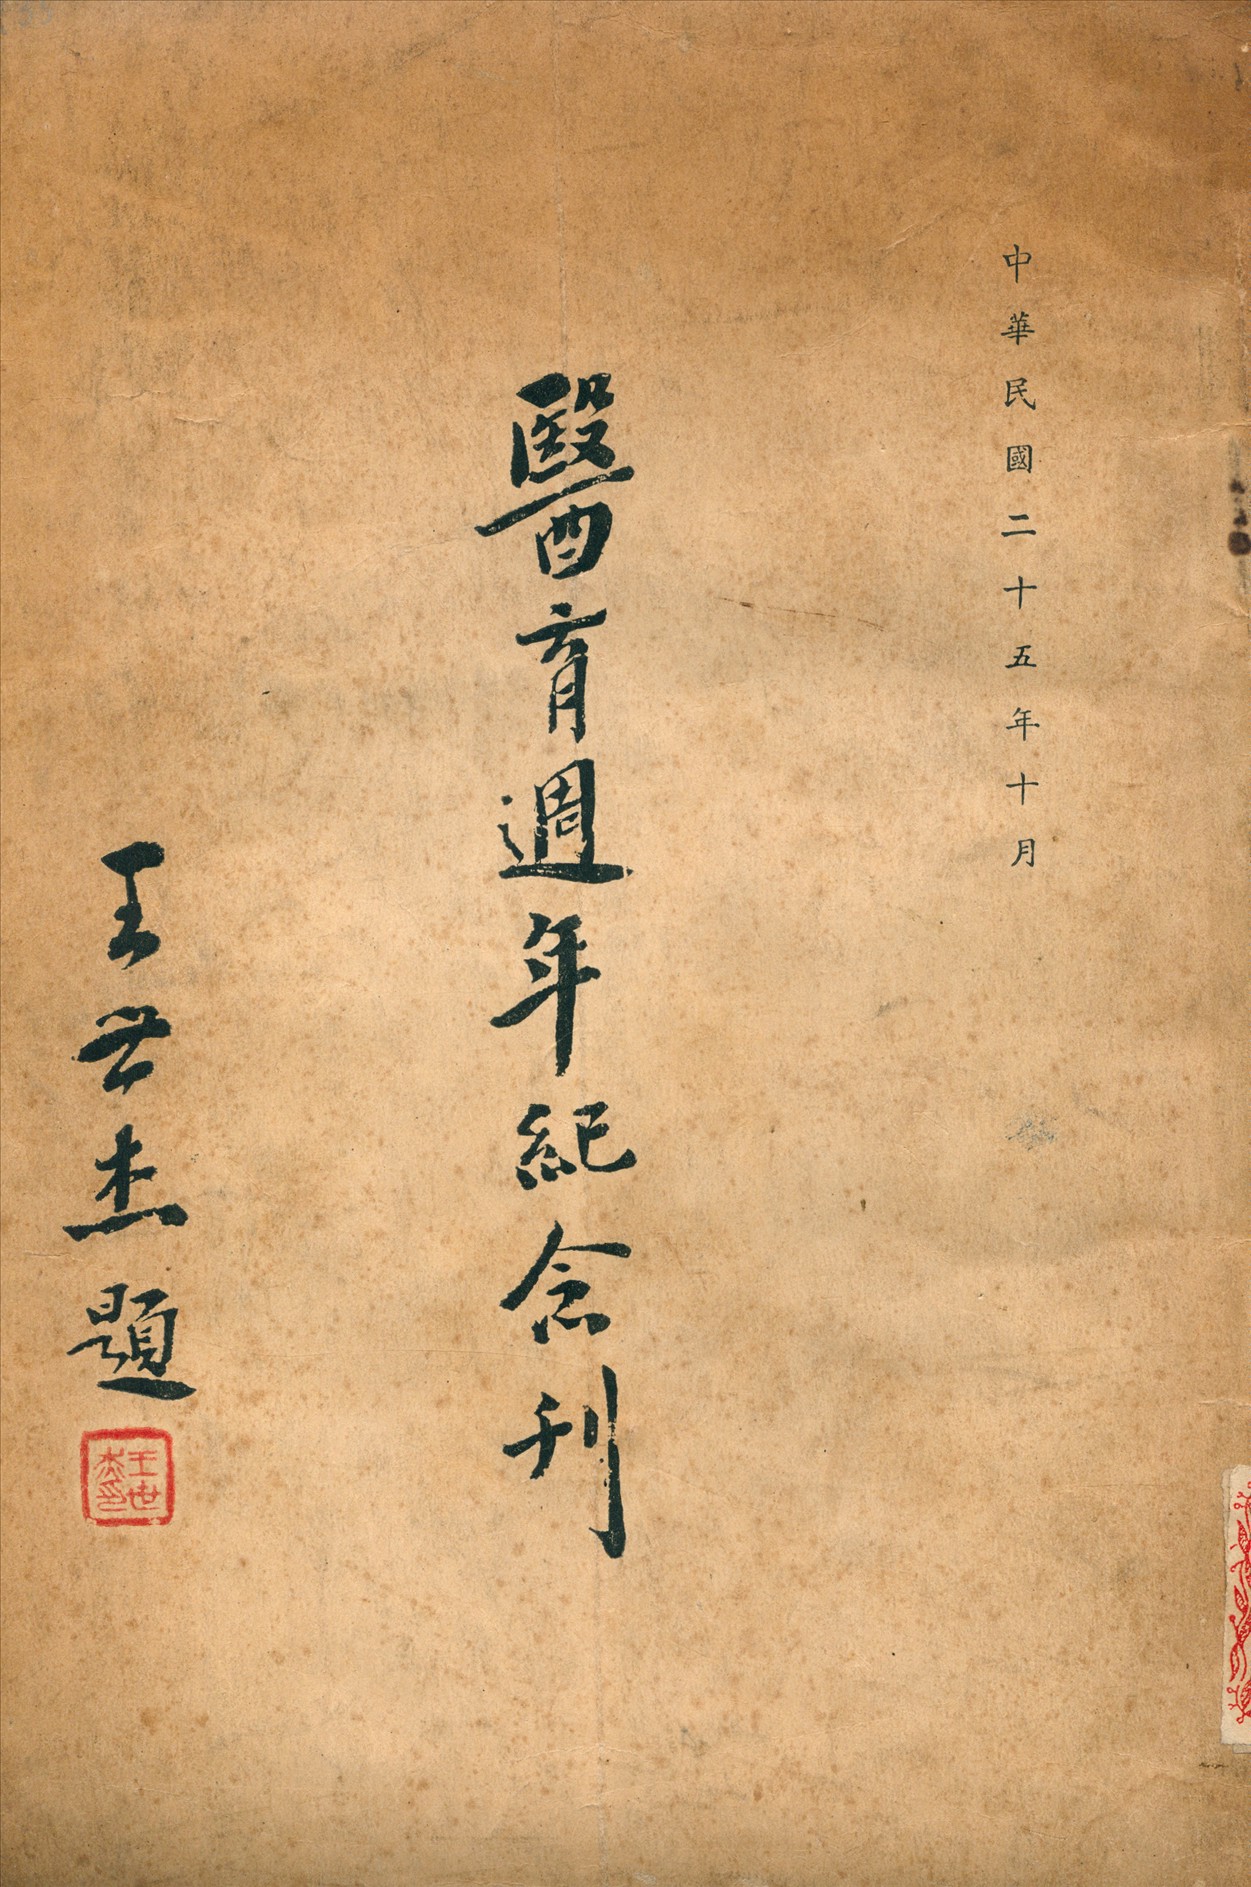 中華民國二十五年十月
醫育週年紀念刊
王世杰題
王世
杰印